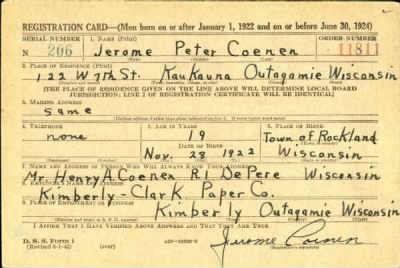 REGISTRATION CARD—(Men born on or after January 1, 1922 and on or before June 30, 1924)
SERIAL NUMBER 1. NAME (Print) ORDER NUMBER
N 206 Jerome Peter Coenen 11811
2. PLACE OF RESIDENCE (Print)
122 W 7th St. Kaukauna Outagamie Wisconsin
[THE PLACE OF RESIDENCE GIVEN ON THE LINE ABOVE WILL DETERMINE LOCAL BOARD
JURISDICTION; LINE 2 OF REGISTRATION CERTIFICATE WILL BE IDENTICAL]
3. MAILING ADDRESS
same
4. TELEPHONE 5. AGE IN YEARS 6. PLACE OF BIRTH
none 19 Town of Rockland
DATE OF BIRTH
Nov. 28 1922 Wisconsin
7. NAME AND ADDRESS OF PERSON WHO WILL ALWAYS KNOW YOUR ADDRESS
Mr. Henry A. Coenen R1 DePere Wisconsin
8. EMPLOYER'S NAME AND ADDRESS
Kimberly-Clark Paper Co.
9. PLACE OF EMPLOYMENT OR BUSINESS
Kimberly Outagamie Wisconsin
I AFFIRM THAT I HAVE VERIFIED ABOVE ANSWERS AND THAT THEY ARE TRUE.
D. S. S. Form 1
(Revised 6-1-42) (over)
Jerome Coenen